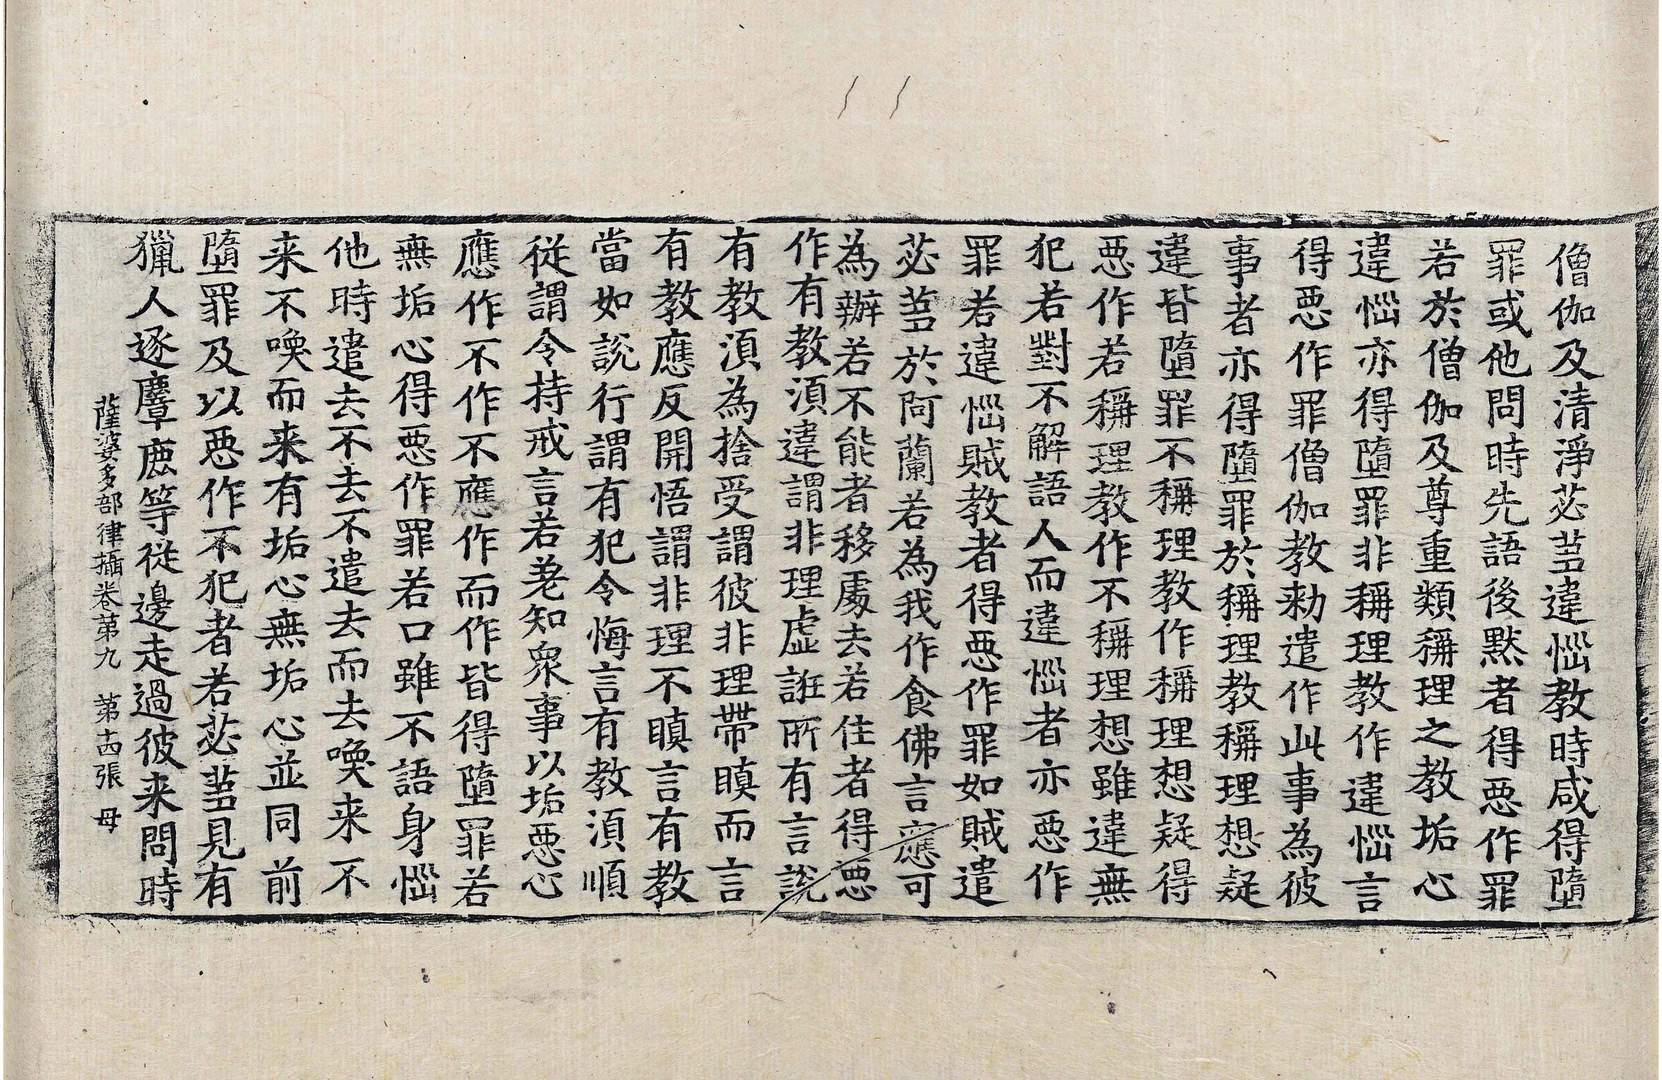 僧伽及清淨苾芻違惱教時咸得墮
罪或他問時先語後默者得惡作罪
若於僧伽及尊重類稱理之教垢心
違惱亦得墮罪非稱理教作違惱言
得惡作罪僧伽教勑遣作此事為彼
事者亦得墮罪於稱理教稱理想疑
違皆墮罪不稱理教作稱理想疑得
惡作若稱理教作不稱理想雖違無
犯若對不解語人而違惱者亦惡作
罪若違惱賊教者得惡作罪如賊遣
苾芻於阿蘭若為我作食佛言應可
為辦若不能者移處去若住者得惡
作有教須違謂非理虛誑所有言說
有教須為捨受謂彼非理帶瞋而言
有教應反開悟謂非理不瞋言有教
當如說行謂有犯令悔言有教須順
從謂令持戒言若老知衆事以垢惡心
應作不作不應作而作皆得墮罪若
無垢心得惡作罪若口雖不語身惱
他時遣去不去不遣去而去喚来不
来不喚而来有垢心無垢心並同前
墮罪及以惡作不犯者若苾芻見有
獵人逐麞鹿等從邊走過彼来問時
薩婆多部律攝卷第九 第十四張 母